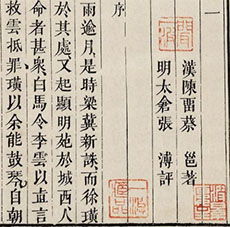 一
漢陳畱蔡 邕著
明太倉張 溥評
序
雨逾月是時梁冀新誅而徐璜
於其處又起顯明苑於城西人
命者甚衆白馬令李雲以直言
救雲抵罪璜以余能鼓琴自朝